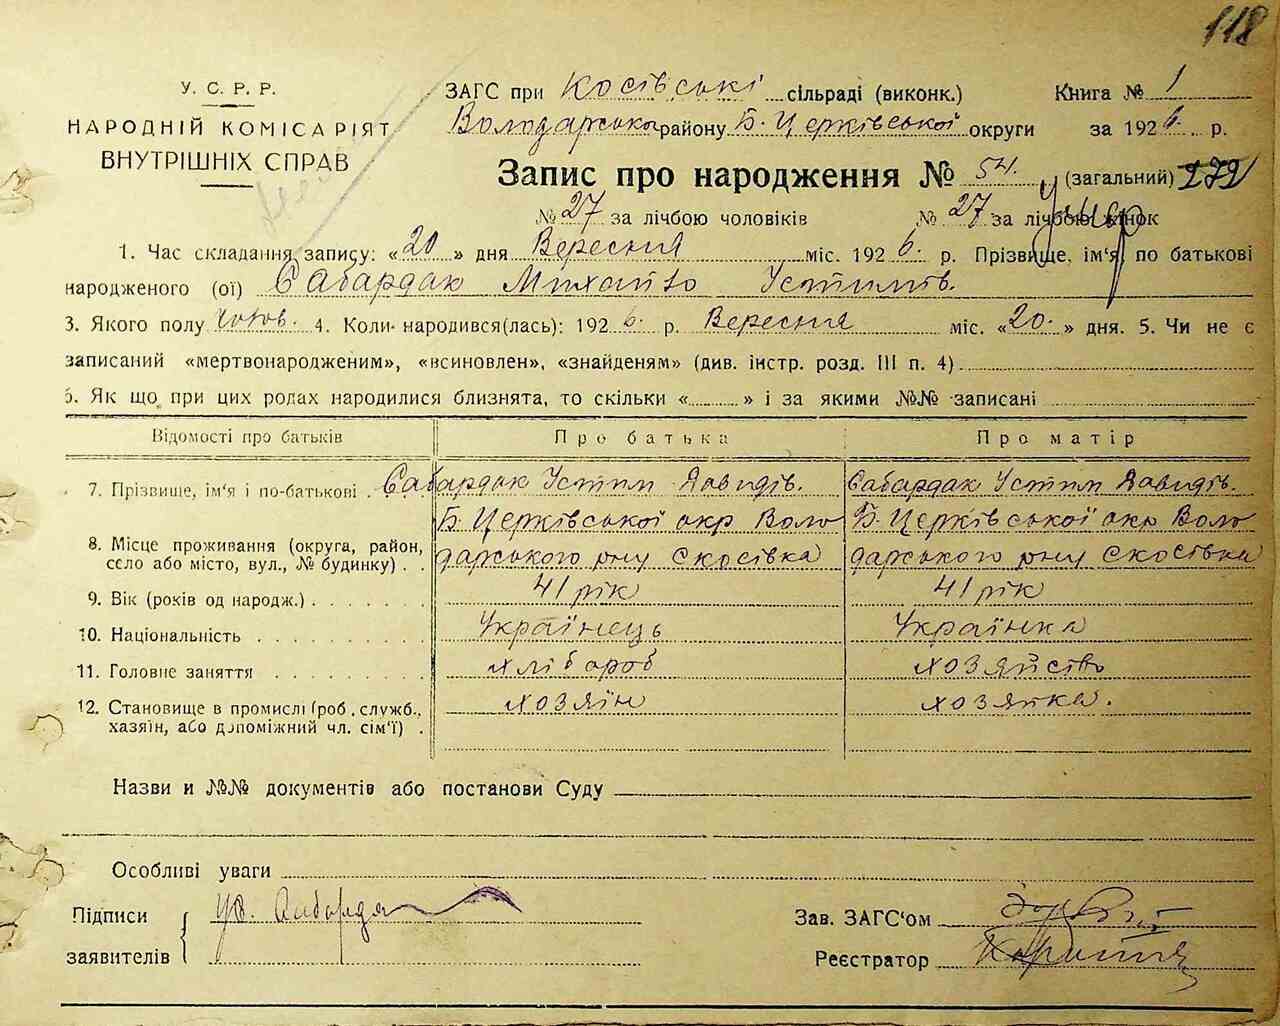 118
У. С. Р. Р.
НАРОДНІЙ КОМІСАРІЯТ
ВНУТРІШНІХ СПРАВ
ЗАГС при Косівські сільраді (виконк.) Книга № 1
Володарська району Б. Церківської округи за 1926 р.
Запис про народження № 54. (загальний) 272
№ 27 за лічбою чоловіків № 27 за лічбою жінок
умер
1. Час складання запису: «20» дня Вересня міс. 1926. р. Прізвище, ім'я, по батькові
народженого (ої) Сабардак Михайло Устимів.
3. Якого полу чолов. 4. Коли народився(лась): 1926. р. Вересня міс. «20.» дня. 5. Чи не є
записаний «мертвонародженим», «всиновлен», «знайденям» (див. інстр. розд. III п. 4)
6. Як що при цих родах народилися близнята, то скільки « » і за якими №№ записані
Відомості про батьків Про батька Про матір
7. Прізвище, ім'я і по-батькові . Сабардак Устим Давидів. Сабардак Устим Давидів.
Б. Церківської окр Воло Б. Церківської окр Воло
8. Місце проживання (округа, район, дарського рну Скосівка дарського рну Скосівка
село або місто, вул., № будинку) . .
9. Вік (років од народж.) 41 рік 41 рік
10. Національність Українець Українка
11. Головне заняття хлібороб хозяйство
12. Становище в промислі (роб., служб., хозяїн хозяйка.
хазяїн, або допоміжний чл. сім'ї) .
Назви и №№ документів або постанови Суду
Особливі уваги
Підписи Сабардак Зав. ЗАГС'ом
заявителів Реєстратор